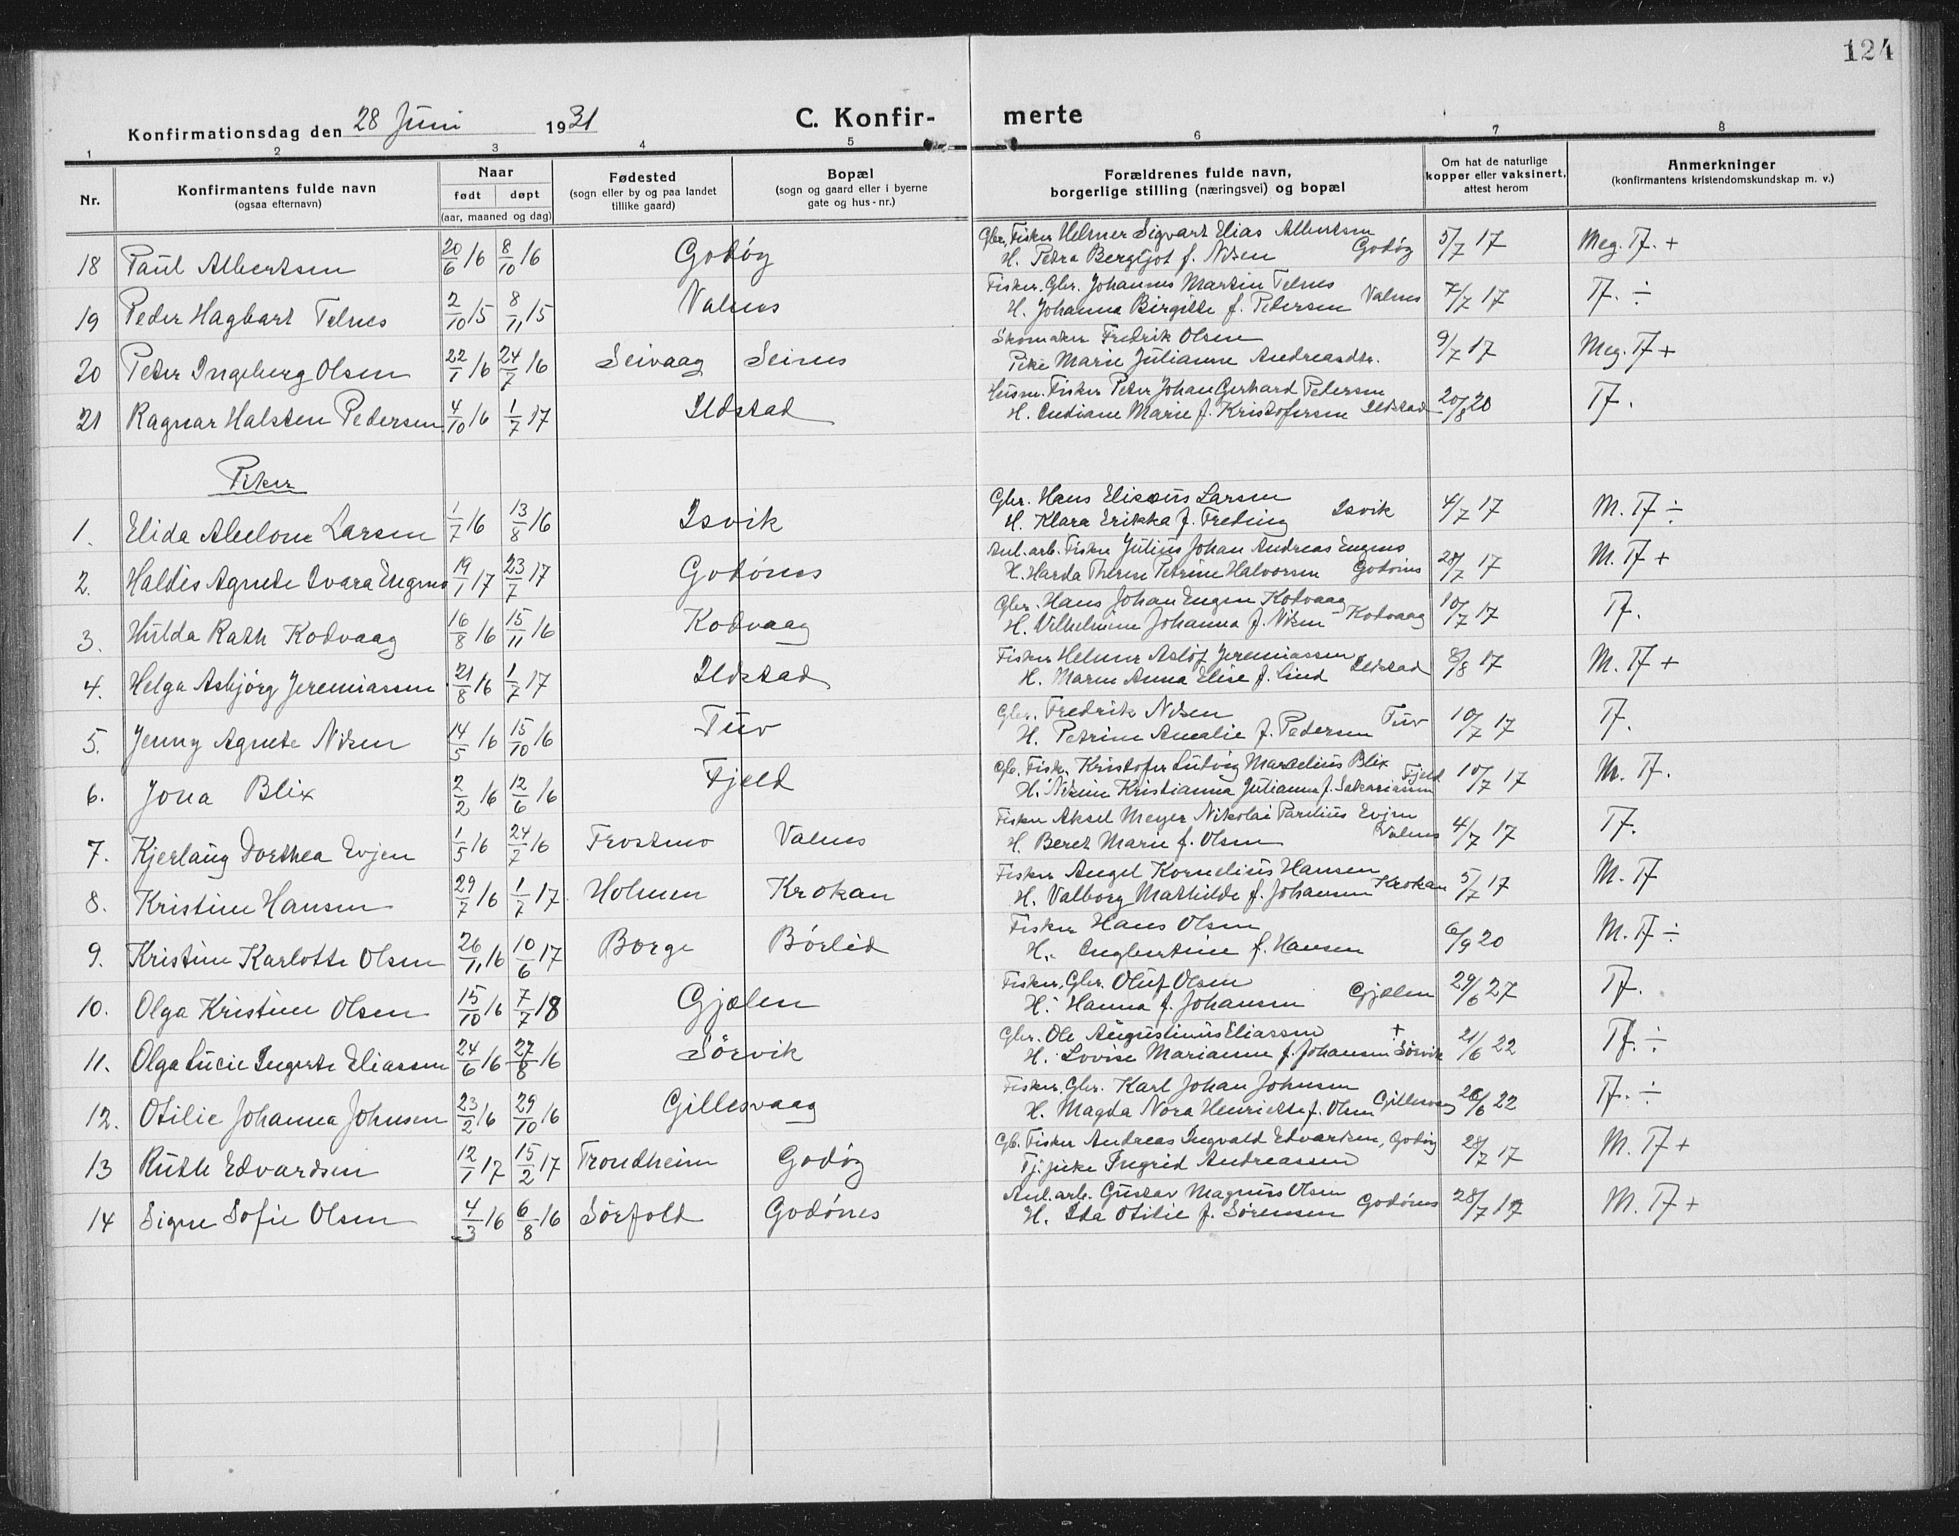 124
Konfirmationsdag den 28 Juni 1931 C. Konfir- merte
1 2 3 4 5 6 7 8
Nr. Konfirmantens fulde navn (ogsaa efternavn) Naar født døpt (aar, maaned og dag) Fødested (sogn eller by og paa landet tillike gaard) Bopæl (sogn og gaard eller i byerne gate og hus-nr.) Forældrenes fulde navn, borgerlige stilling (næringsvei) og bopæl Om hat de naturlige kopper eller vaksinert, attest herom Anmerkninger (konfirmantens kristendomskundskap m. v.)
Gbr. Fisker Helmer Sigvart Elias Albertsen
18 Paul Albertsen 20/6 16 8/10 16 Godøy H. Petra Bergljot f. Nilsen Godøy 5/7 17 Meg. Tf. +
Fisker. Gbr. Johannes Martin Telnes
19 Peder Hagbart Telnes 2/10 15 8/11 15 Valnes H. Johanna Birgitte f. Pedersen Valnes 7/7 17 Tf. ÷
Skomaker Fredrik Olsen
20 Peter Ingeberg Olsen 22/1 16 24/7 16 Seivaag Seines Pike Marie Julianne Andreasdtr. 9/7 17 Meg. Tf +
Husm. Fisker Peter Johan Gerhard Pedersen
21 Ragnar Halsten Pedersen 4/10 16 1/7 17 Ildstad H. Indiane Marie f. Kristofersen Ildstad 20/8 20 Tf.
Piker
Gbr. Hans Elisæus Larsen
1. Elida Abelone Larsen 1/7 16 13/8 16 Isvik H. Klara Erikka f. Freding Isvik 4/7 17 M. Tf ÷
Anl. arb. Fisker Julius Johan Andreas Engnes
2. Haldis Agnete Ivara Engnes 19/1 17 23/7 17 Godønes H. Harda Therese Petrine Halvorsen Godønes 28/7 17 M. Tf +
Gbr. Hans Johan Eugen Kodvaag
3. Hulda Rath Kodvaag 16/8 16 15/11 16 Kodvaag H. Vilhelmine Johanna f. Nilsen Kodvaag 10/7 17 Tf.
Fisker Helmer Asløf Jeremiassen
4. Helga Asbjørg Jeremiassen 21/8 16 1/7 17 Ildstad H. Maren Anna Elise f. Lind Ildstad 8/8 17 M. Tf +
Gbr. Fredrik Nilsen
5. Jenny Agnete Nilsen 14/5 16 15/10 16 Tuv H. Petrine Amalie f. Pedersen Tuv 10/7 17 Tf.
Gb. Fisk. Kristofer Ludvig Marcelius Blix
6. Jona Blix 2/2 16 12/6 16 Fjeld H. Nikine Kristianna Julianna f. Sakariassen Fjeld 10/7 17 M. Tf.
Fisker Aksel Meyer Nikolai Parelius Evjen
7. Kjerlaug Dorthea Evjen 1/5 16 24/7 16 Frostmo Valnes H. Beret Marie f. Olsen Valnes 4/7 17 Tf.
Fisker Angel Kornelius Hansen
8. Kristine Hansen 29/7 16 1/7 17 Holmen Krokan H. Valborg Mathilde f. Johansen Krokan 5/7 17 M. Tf
Fisker Hans Olsen
9. Kristine Karlotte Olsen 26/11 16 10/6 17 Borge Børlid H. Ingbertine f. Hansen 6/9 20 M. Tf ÷
Fisker. Gbr. Oluf Olsen
10. Olga Kristine Olsen 15/10 16 7/7 18 Gjælen H. Hanna f. Johansen Gjælen 29/6 27 Tf.
Gbr. Ole Augustinus Eliassen +
11. Olga Lucie Ingerte Eliassen 24/6 16 27/8 16 Sørvik H. Lovise Marianne f. Johansen Sørvik 21/6 22 Tf. ÷
Fisker. Gbr. Karl Johan Johnsen
12. Otilie Johanna Johnsen 23/2 16 29/10 16 Gillesvaag H. Magda Nora Henriette f. Olsen Gillesvaag 26/6 22 Tf. ÷
Gb. Fisker Andreas Ingvald Edvardsen, Godøy
13 Ruth Edvardsen 12/1 17 15/2 17 Trondheim Godøy Tj. pike Ingrid Andreassen 28/7 17 M. Tf +
Anl. arb. Gustav Magnus Olsen
14 Signe Sofie Olsen 4/3 16 6/8 16 Sørfold Godønes H. Ida Otilie f. Sørensen Godønes 28/7 17 M. Tf +